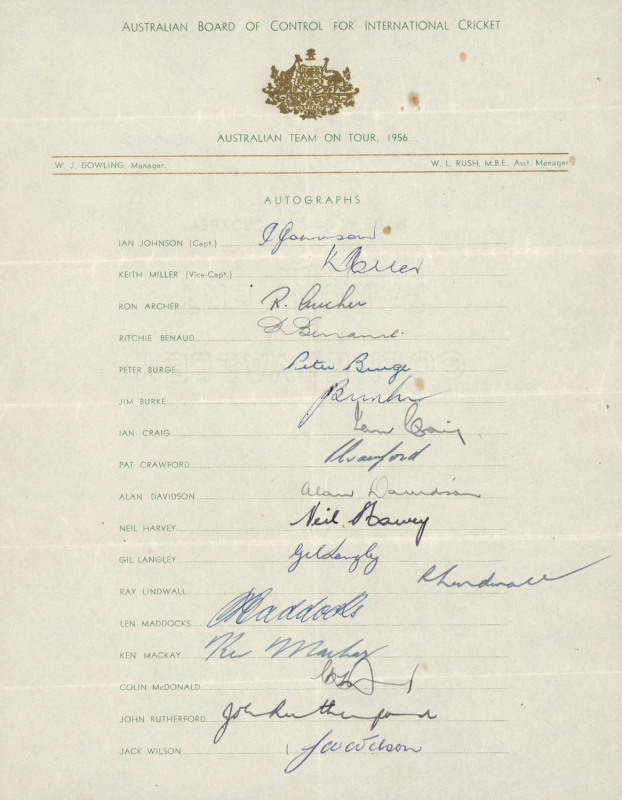 AUSTRALIAN BOARD OF CONTROL FOR INTERNATIONAL CRICKET
AUSTRALIAN TEAM ON TOUR, 1956
W. J. DOWLING, Manager. W. L. RUSH, M.B.E., Asst. Manager
AUTOGRAPHS
IAN JOHNSON (Capt.) I Johnson
KEITH MILLER (Vice-Capt.) K Miller
RON ARCHER R. Archer
RITCHIE BENAUD R Benaud.
PETER BURGE Peter Burge
JIM BURKE JBurke
IAN CRAIG Ian Craig
PAT CRAWFORD PCrawford
ALAN DAVIDSON Alan Davidson
NEIL HARVEY Neil Harvey
GIL LANGLEY Gil Langley
RAY LINDWALL R Lindwall
LEN MADDOCKS Maddocks
KEN MACKAY Ken Mackay
COLIN McDONALD
JOHN RUTHERFORD John Rutherford
JACK WILSON J W Wilson